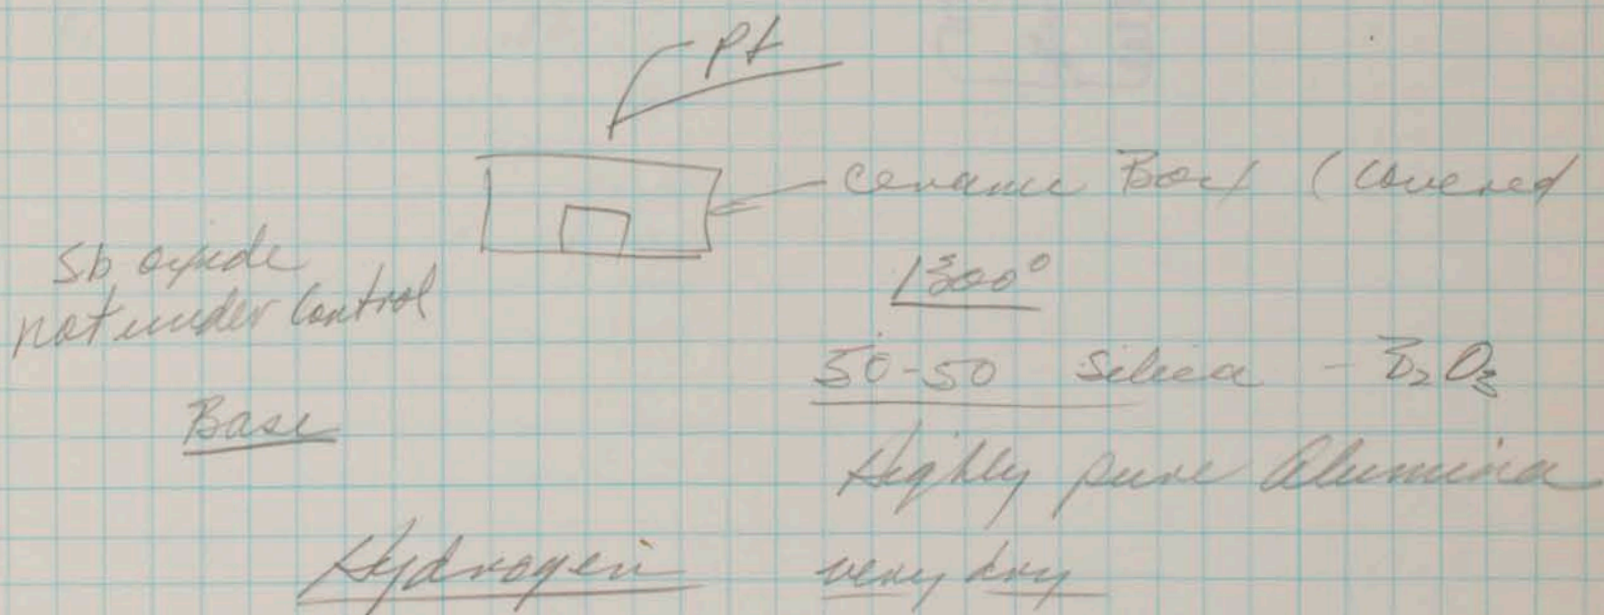 Pt
Ceramic Box (covered
Sb oxide
not under Control
1300°
50-50 Silica - B₂O₃
Base
Highly pure Alumina
Hydrogen very dry